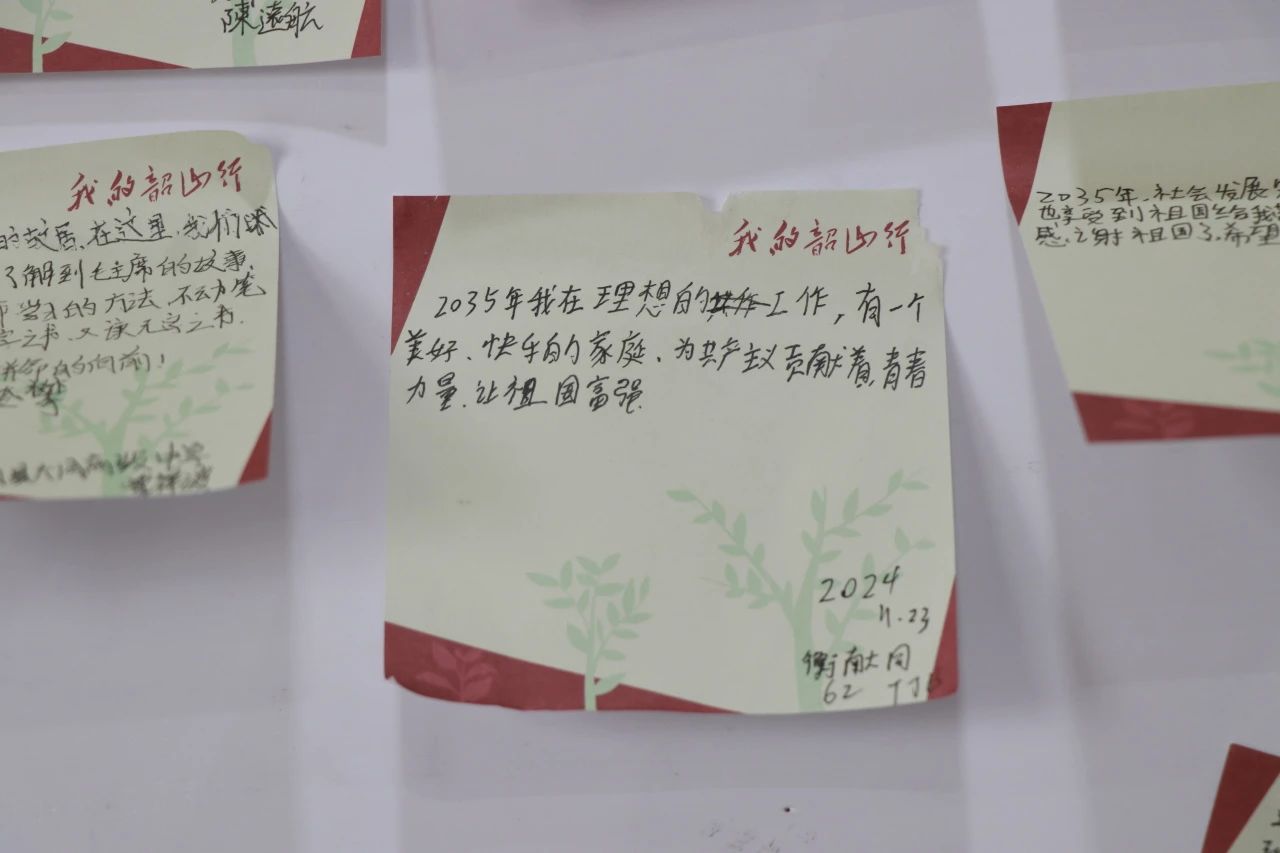 陳遠航
我的韶山行
的故居,在这里,我们
了解到毛主席的故事,
学习的方法,不动笔
之书,又读无字之书.
的向前!
我的韶山行
2035年我在理想的工作,有一个
美好、快乐的家庭、为共产主义贡献着青春
力量.让祖国富强.
2024
11.23
衡南大同
62 TJB
2035年,社会发展
也享受到祖国给我
感.之射祖国了.希望